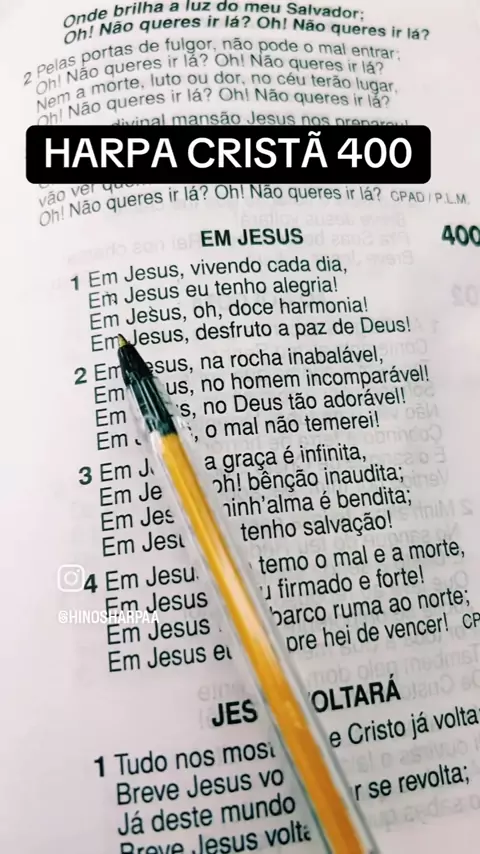 Onde brilha a luz do meu Salvador;
Oh! Não queres ir lá? Oh! Não queres ir lá?
2 Pelas portas de fulgor, não pode o mal entrar;
Oh! Não queres ir lá? Oh! Não queres ir lá?
Nem a morte, luto ou dor, no céu terão lugar,
Oh! Não queres ir lá? Oh! Não queres ir lá?
divinal mansão Jesus nos preparou
HARPA CRISTÃ 400
vão ver
Oh! Não queres ir lá? Oh! Não queres ir lá? CPAD / P.L.M.
EM JESUS 400
1 Em Jesus, vivendo cada dia,
Em Jesus eu tenho alegria!
Em Jesus, oh, doce harmonia!
Em Jesus, desfruto a paz de Deus!
2 Em esus, na rocha inabalável,
Em us, no homem incomparável!
Em s, no Deus tão adorável!
Em , o mal não temerei!
3 Em J a graça é infinita,
Em Je oh! bênção inaudita;
Em Jes minh'alma é bendita;
Em Jesu tenho salvação!
4 Em Jesu temo o mal e a morte,
Em Jesus u firmado e forte!
@HINOSHARPAA
Em Jesus barco ruma ao norte;
Em Jesus eu pre hei de vencer! CP
JES VOLTARÁ
1 Tudo nos most e Cristo já volta
Breve Jesus vo
Já deste mundo r se revolta;
Breve Jesus volta